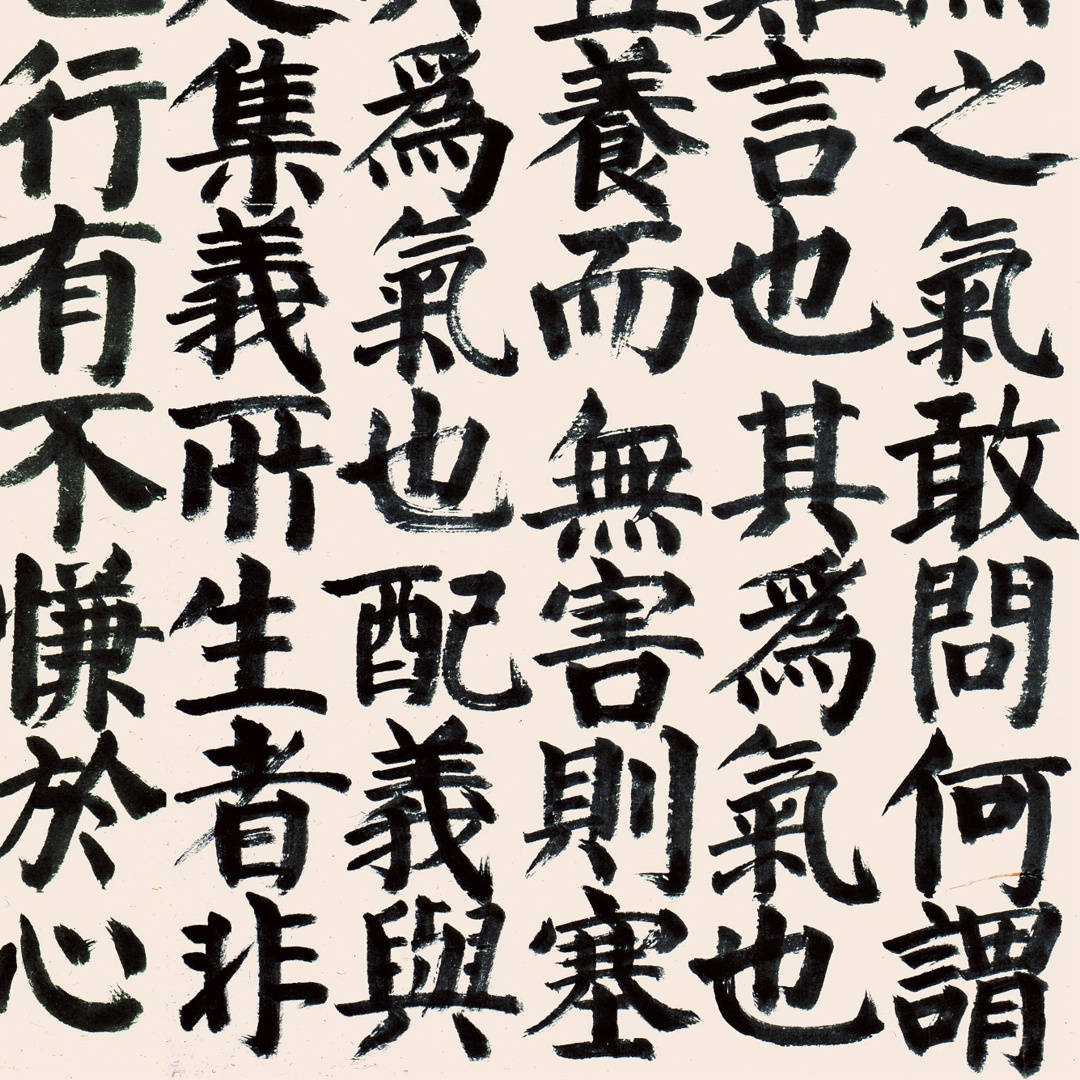 之氣敢問何謂
言也其爲氣也
養而無害則塞
爲氣也配義與
集義所生者非
行有不慊於心